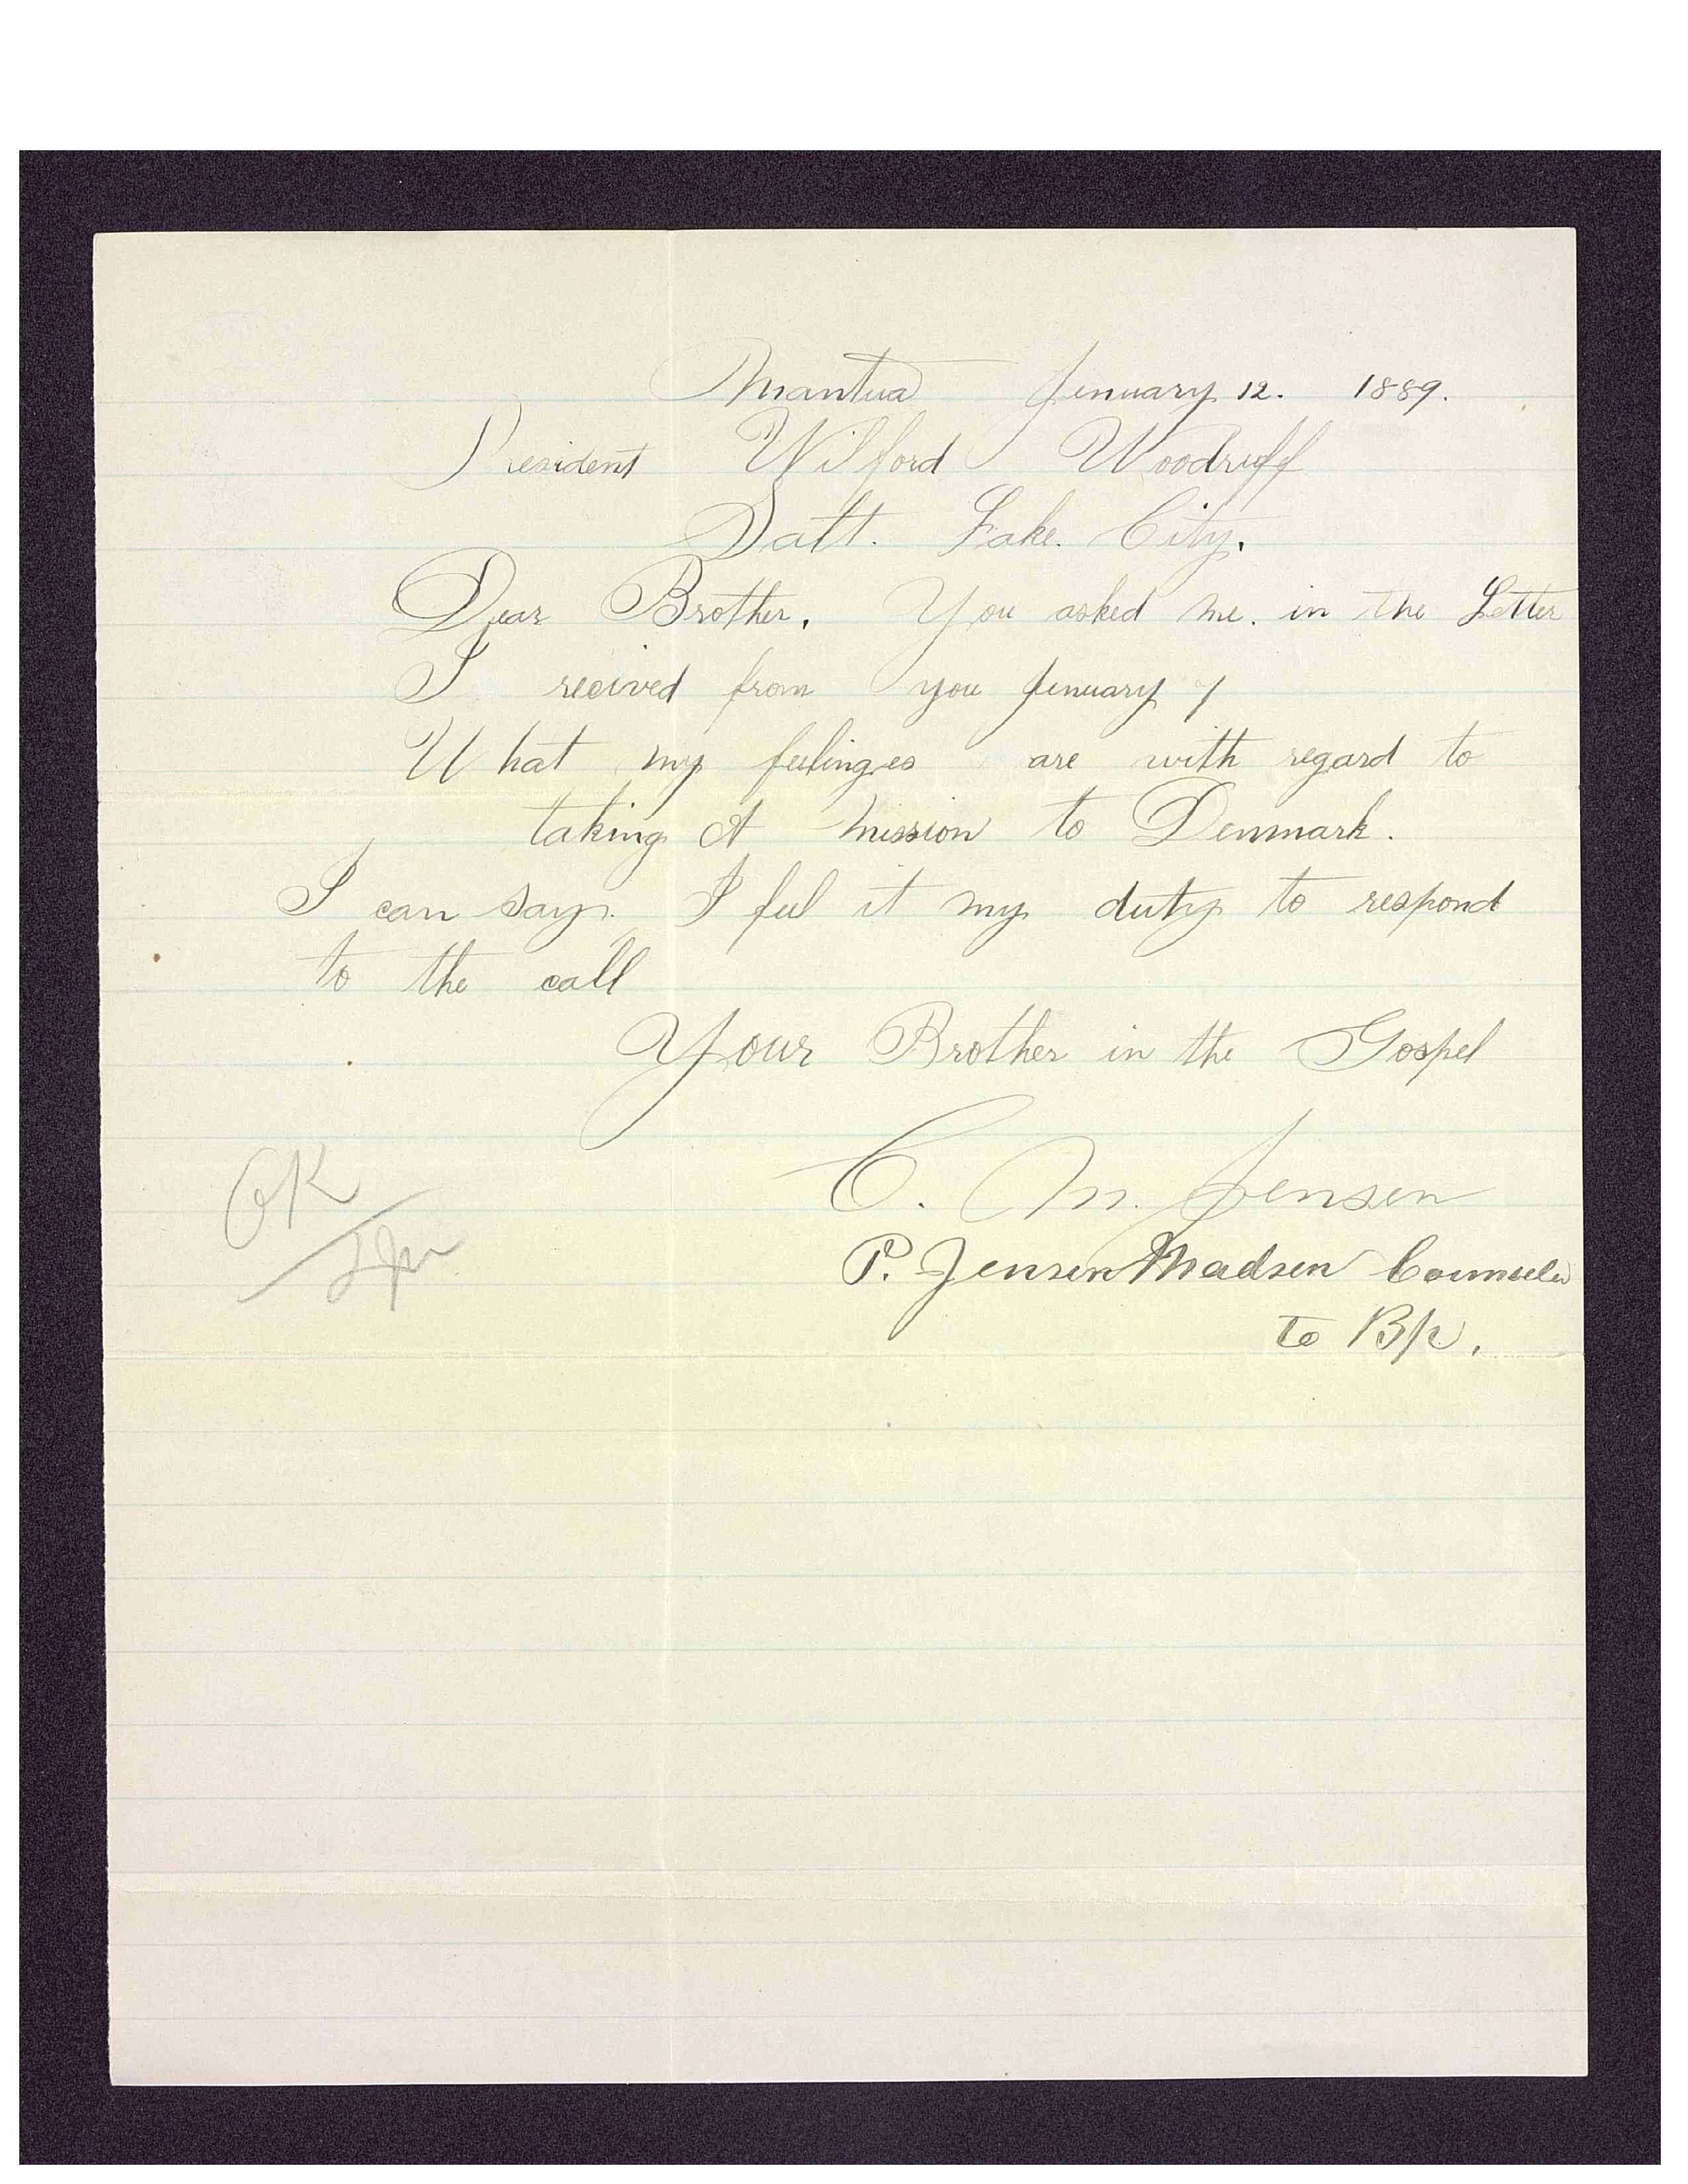 Mantua Jenuary 12. 1889.
President Wilford Woodruff
Salt. Lake. City.
Dear Brother. You asked me. in the Letter
I recived from you Jenuary 7
What my feelinges are with regard to
taking A mission to Denmark.
I can say. I feel it my duty to respond
to the call
Your Brother in the Gospel
C. M. Jensen
P. Jensen Madsen Counseler
to Bp.
OK